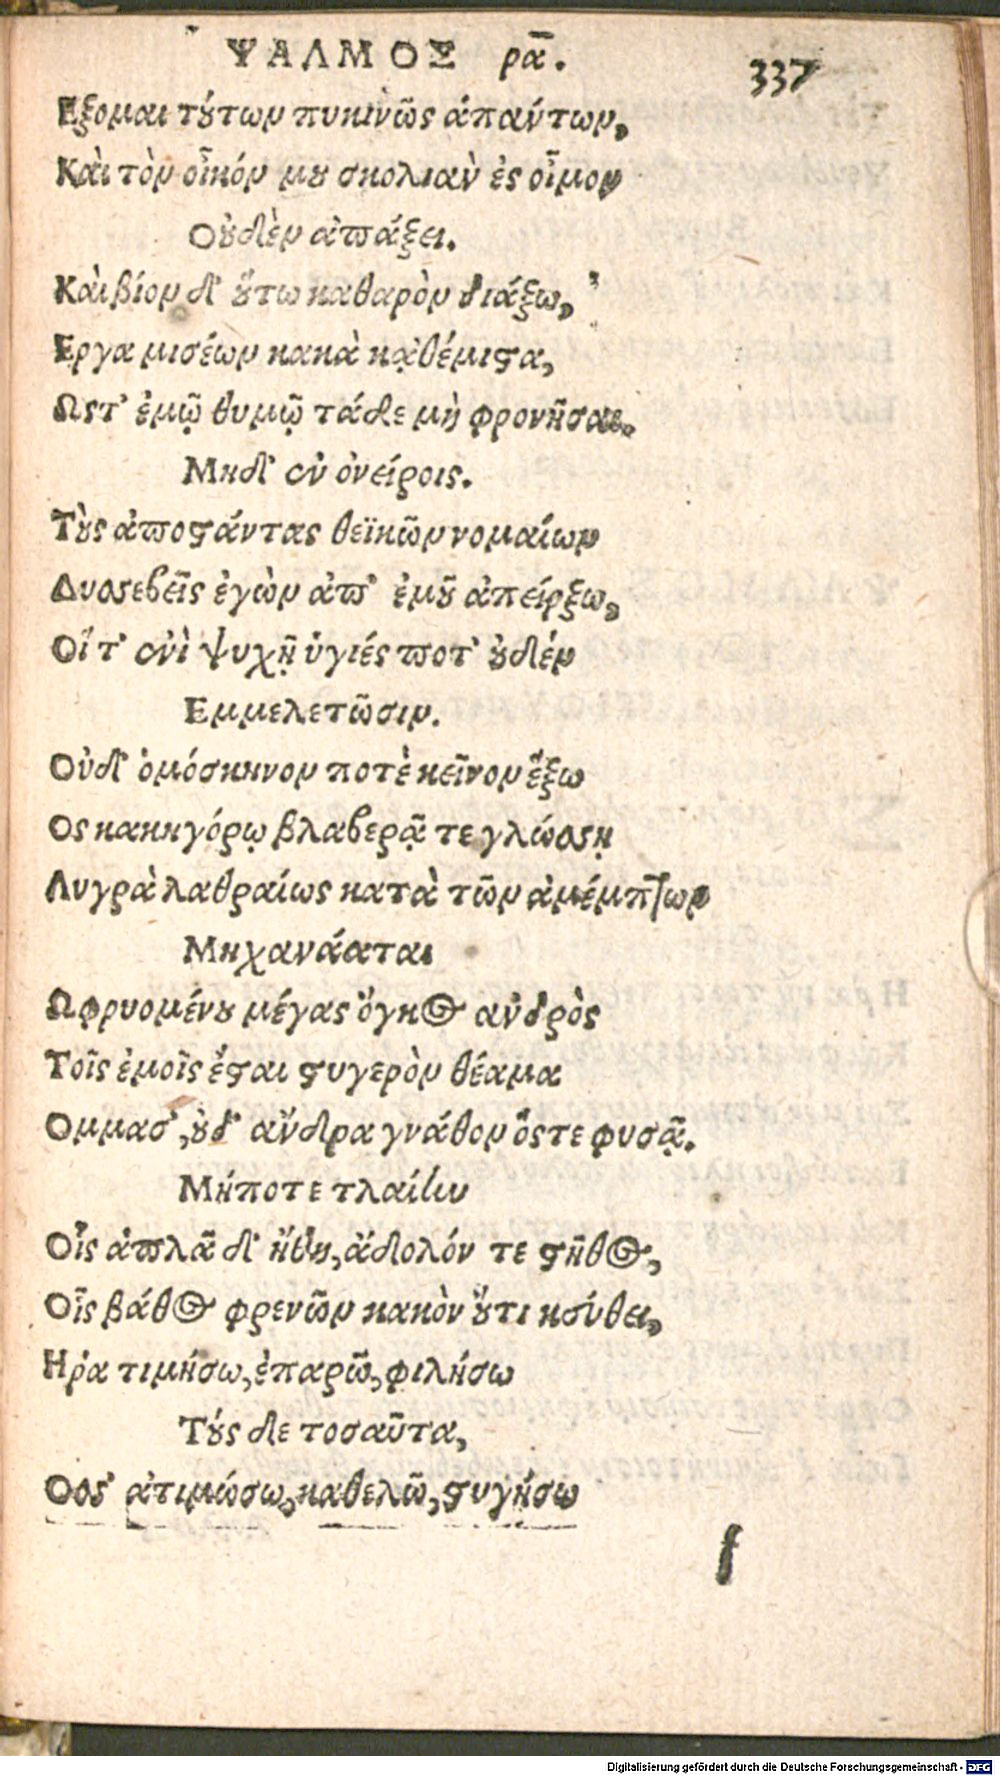 ΨΑΛΜΟΣ ρα. 337
Εξομαι τούτων πυκινῶς ἁπαύτων,
Καὶ τὸν οἶκόν μου σκολιὰν ἐς οἶμον
Οὐδὲν ἀπάξει.
Καὶ βίον δ' οὕτω καθαρὸν διάξω,
Εργα μισέων κακὰ κᾀθέμιςα,
Ωςτ' ἐμῷ θυμῷ τάδε μὴ φρονῆσαι,
Μηδ' ἐν ὀνείροις.
Τοὺς ἀποςάντας θεϊκῶν νομαίων
Δυσσεβεῖς ἐγὼν ἀπ' ἐμοῦ ἀπείρξω,
Οἵ τ' ἐνὶ ψυχῇ ὑγιές ποτ' οὐδέν
Εμμελετῶσιν.
Οὐδ' ὁμόσκηνον ποτὲ κεῖνον ἕξω
Ος κακηγόρῳ βλαβερᾷ τε γλώσσῃ
Λυγρὰ λαθραίως κατὰ τῶν ἀμέμπτων
Μηχανάαται
Ωφρυομένου μέγας ὄγκος ἀνδρὸς
Τοῖς ἐμοῖς ἔςαι ςυγερὸν θέαμα
Ομμασ', οὐδ' ἄνδρα γνάθον ὅςτε φυσᾷ.
Μήποτε τλαίην
Οἷς ἁπλᾶ δ' ἤθη, ἄδολόν τε ςῆθος,
Οἷς βάθος φρενῶν κακὸν οὔτι κεύθει,
Ηρα τιμήσω, ἐπαρῶ, φιλήσω
Τούς δε τοσαῦτα,
Οσσ' ἀτιμώσω, καθελῶ, ςυγήσω
f
Digitalisierung gefördert durch die Deutsche Forschungsgemeinschaft - DFG